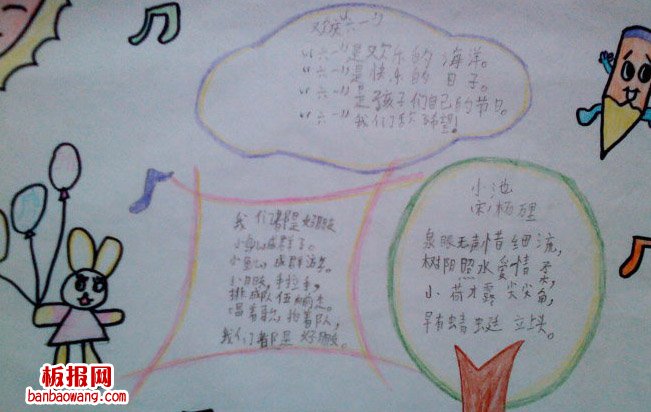 “六一”
“六一”是欢乐的海洋。
“六一”是快乐的日子。
“六一”是孩子们自己的节日。
“六一”我们 希望!
我们都是好朋友
小鸟 成群
小鱼 成群
小朋友,手拉手,
排成队伍向前走。
唱着歌, 着队,
我们都是好朋友。
小池
(宋)杨
泉眼无声惜细流,
树阴照水爱情柔,
小荷才露尖尖角,
早有蜻蜓立上头。
板报网
banbaowang.com